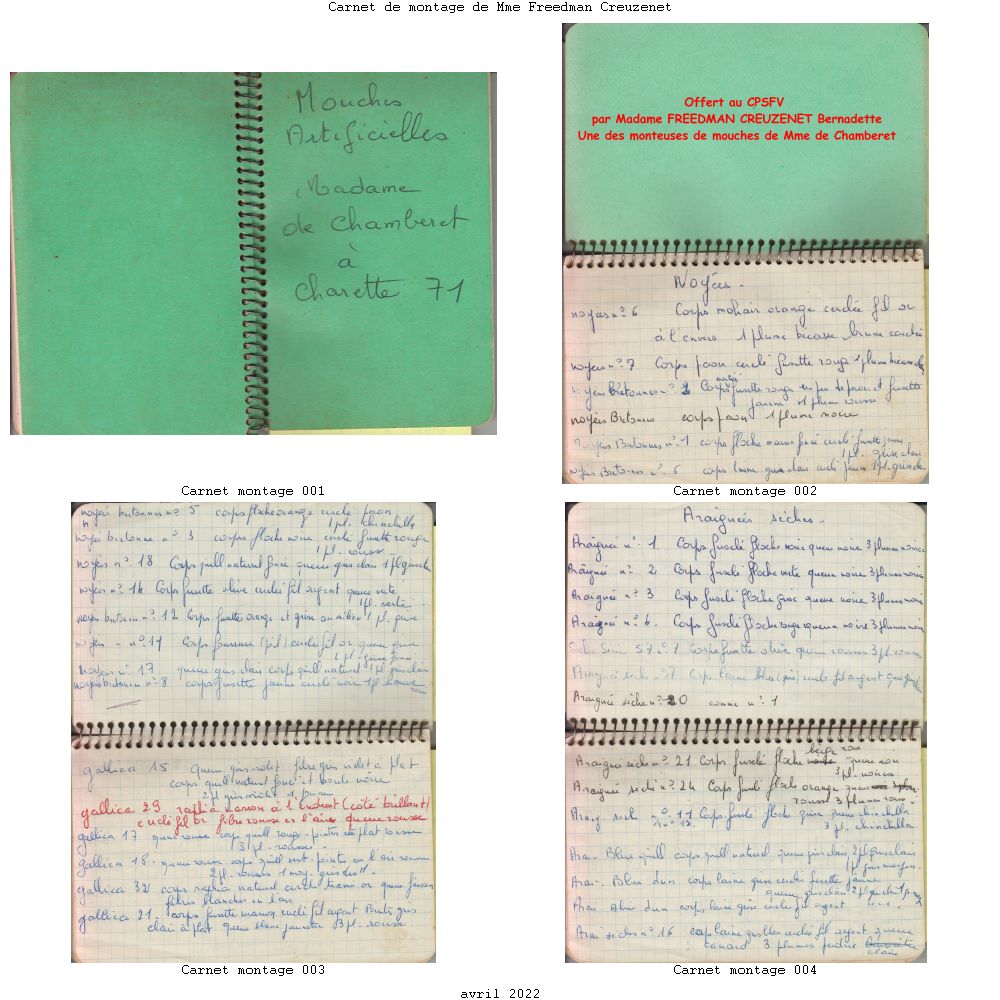 Carnet de montage de Mme Freedman Creuzenet
Mouches
Artificielles
Madame
de Chamberet
à
Charette 71
Carnet montage 001
Offert au CPSFV
par Madame FREEDMAN CREUZENET Bernadette
Une des monteuses de mouches de Mme de Chamberet
Noyées.
noyées n° 6 Corps mohair orange cerclée fil or
à l'envers 1 plume bécasse brune cerclée
noyées n° 7 Corps paon cerclé fusette rouge 1 plume bécasse
Corps fusette rouge
jaune 1 plume rousse
noyées Bretonnes corps paon 1 plume noire
Noyées Bretonnes n° 1 corps floche cerclé fusette jaune
1 pl. gris clair
noyées Bretonnes n° 6 corps laine gris clair cerclé jaune 1 pl.
Carnet montage 002
noyées bretonnes n° 5 corps floche orange cerclé paon
1 pl. chinchilla
noyée bretonne n° 3 corps floche noire cerclé fusette rouge
1 pl. rousse
noyées n° 18 Corps quill naturel foncé queue gris clair 1 pl gris clair
noyées n° 14 Corps fusette olive cerclée fil argent queue verte
1 pl. verte
noyées bretonnes n° 12 Corps fusette orange et grise au milieu 1 pl. grise
noyées - n° 19 Corps cerclé fil or queue grise
1 pl. grise
Noyées n° 17 queue gris clair corps quill naturel 1 pl gris clair
noyées bretonnes n° 8 corps fusette jaune cerclé noire 1 pl
gallica 15 Queue gris violet fibre gris violet à plat
corps quill naturel foncé et boule noire
2 pl gris violet 1
gallica 29 raphia marron à l'endroit (côté brillant)
cerclé fil or fibre rousse en l'air queue rousse
gallica 17 queue rousse corps quill rouge - pointes en plat rousse
3 pl. rousses
gallica 18 - queue rousse corps quill nat. pointes en l'air rousse
2 pl. rousses 1 moy. gris
gallica 32 corps raphia naturel cerclé or queue faisan
fibres blanches en l'air
gallica 21 - corps fusette marron cerclé fil argent Pointes gris
clair à plat queue blanc jaunâtre 3 pl. rousse
Carnet montage 003
Araignées sèches -
Araignée n° 1 Corps fuselé floche noire queue noire 3 plumes noires
Araignée n° 2 Corps fuselé floche verte queue noire 3 plumes noires
Araignée n° 3 Corps fuselé floche queue noire 3 plumes noires
Araignée n° 4. Corps fuselé floche rouge queue noire 3 plumes noires
n° 7 Corps fusette olive queue rousse 3 pl. rousse
Araignée sèche n° 17 Corps laine bleu cerclé fil argent queue
Araignée sèche n° 20 comme n° 1
Araignée sèche n° 21 Corps fuselé floche beige queue noire
3 pl. noires
Araignée sèche n° 24 Corps fuselé floche orange queue
rousse 3 plumes rous.
Araig. sèche n° 11 Corps fuselé floche grise queue chinchilla
n° 12. 3 pl. chinchilla
Arai - Blue quill corps quill naturel queue gris clair 2 pl gris clair
1 pl gris moyen.
Arai - Blue dun corps laine gris cerclée fusette jaune
queue gris clair 2 pl gris clair 1 p.
Arai Blue dun corps laine grise cerclé fil argent
Arai sèches n° 16 corps laine gris bleu cerclé fil argent queue
canard 3 plumes perdrix
claire
Carnet montage 004
avril 2022